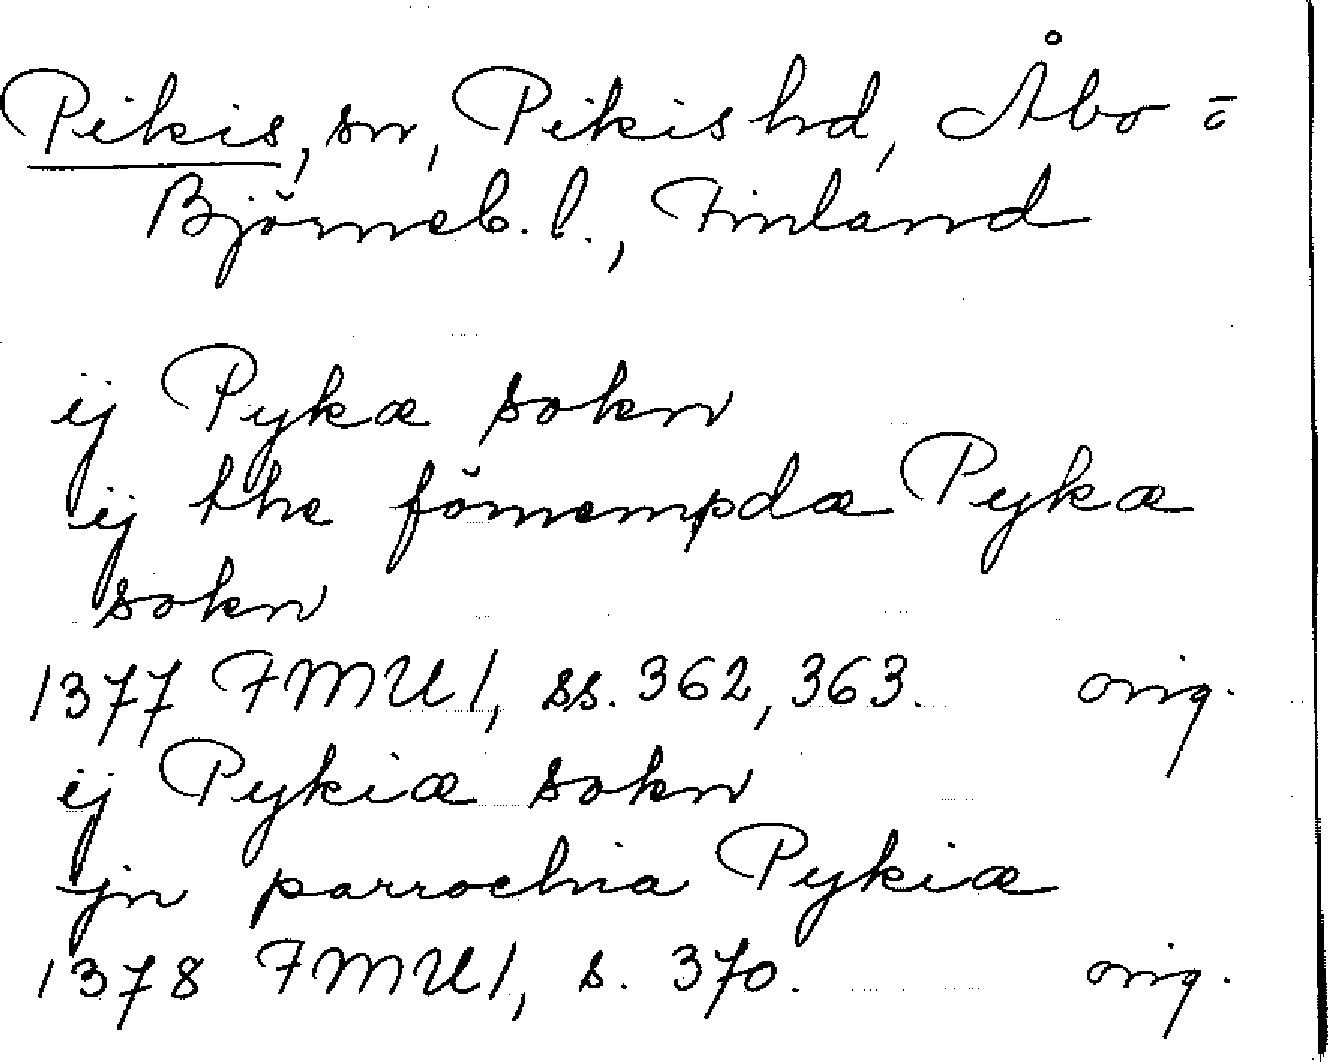 Pikis, sn, Pikis hd, Åbo =
Björneb. l., Finland
ij Pykæ sokn
ij the förnempdæ Pykæ
sokn
1377 FMU 1, ss. 362, 363. orig.
ij Pykiæ sokn
jn parrochia Pykiæ
1378 FMU 1, s. 370. orig.